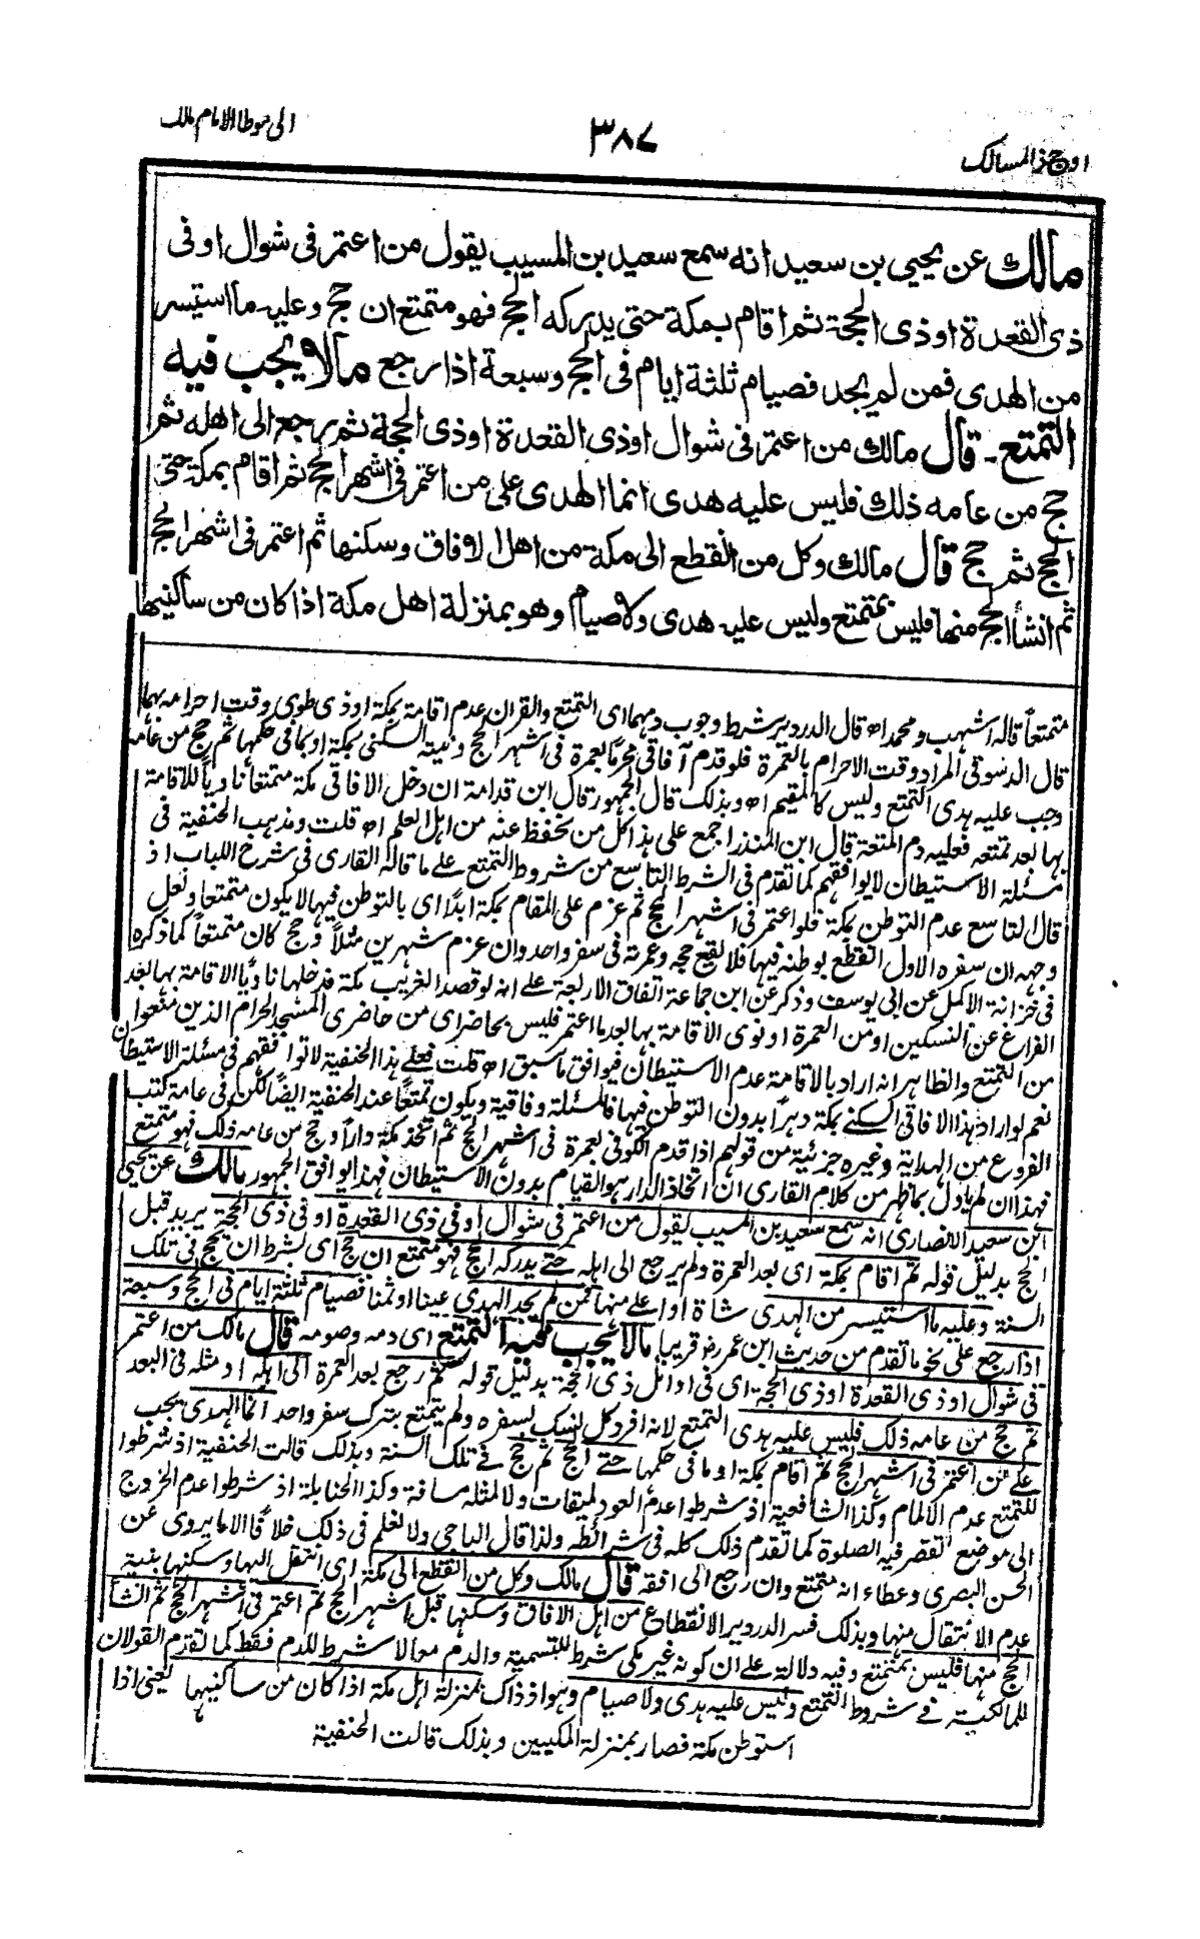 اوجز المسالك
٣٨٧
الى موطا الامام مالك
مالك عن يحيى بن سعيد انه سمع سعيد بن المسيب يقول من اعتمر فى شوال او فى
ذى القعدة او ذى الحجة ثم اقام بمكة حتى يدركه الحج فهو متمتع ان حج وعليه ما استيسر
من الهدى فمن لم يجد فصيام ثلثة ايام فى الحج وسبعة اذا رجع مالا يجب فيه
التمتع۔ قال مالك من اعتمر فى شوال او ذى القعدة او ذى الحجة ثم رجع الى اهله ثم
حج من عامه ذلك فليس عليه هدى انما الهدى على من اعتمر فى اشهر الحج ثم اقام بمكة حتى
الحج ثم حج قال مالك وكل من انقطع الى مكة من اهل الافاق وسكنها ثم اعتمر فى اشهر الحج
ثم انشأ الحج منها فليس بمتمتع وليس عليه هدى ولا صيام وهو بمنزلة اهل مكة اذا كان من ساكنيها
متمتعاً قاله اشهب ومحمد اه قال الدردير شرط وجوب دمهما اى التمتع والقران عدم اقامة بمكة او ذى طوى وقت احرامه بهما
قال الدسوقى المراد وقت الاحرام بالعمرة فلو قدم آفاقى محرما بعمرة فى اشهر الحج ونيته السكنى بمكة او بما فى حكمها ثم حج من عامه
وجب عليه هدى التمتع وليس كالمقيم اه وبذلك قال الجمهور قال ابن قدامة ان دخل الافاقى مكة متمتعا ناوياً للاقامة
بها بعد تمتعه فعليه دم المتعة قال ابن المنذر اجمع على هذا كل من نحفظ عنه من اهل العلم اه قلت ومذهب الحنفية فى
مسئلة الاستيطان لا يوافقهم كما تقدم فى الشرط التاسع من شروط التمتع على ما قاله القارى فى شرح اللباب اذ
قال التاسع عدم التوطن بمكة فلو اعتمر فى اشهر الحج ثم عزم على المقام بمكة ابدًا اى بالتوطن فيها لا يكون متمتعا ولعل
وجهه ان سفره الاول انقطع بوطنه فيها فلا يقع حجه وعمرته فى سفر واحد وان عزم شهرين مثلاً وحج كان متمتعاً كما ذكره
فى خزانة الاكمل عن ابى يوسف وذكر عن ابن جماعة اتفاق الاربعة على انه لو قصد الغريب مكة فدخلها ناوياً الاقامة بها بعد
الفراغ عن النسكين او من العمرة او نوى الاقامة بها بعد ما اعتمر فليس بحاضر اى من حاضرى المسجد الحرام الذين منعوا
من التمتع والظاهر انه اراد بالاقامة عدم الاستيطان فيوافق ما سبق اه قلت فعلى هذا الحنفية لا توافقهم فى مسئلة الاستيطان
نعم لو اراد هذا الافاقى السكنى بمكة دهراً بدون التوطن فيها فالمسئلة وفاقية ويكون تمتعاً عند الحنفية ايضًا لكن فى عامة كتب
الفروع من الهداية وغيره جزئية من قولهم اذا قدم الكوفى بعمرة فى اشهر الحج ثم اتخذ مكة داراً وحج من عامه ذلك فهو متمتع
فهذا ان لم يأول بما ظهر من كلام القارى ان اتخاذ الدار هو القيام بدون الاستيطان فهذا يوافق الجمهور مالك عن يحيى
ابن سعيد الانصارى انه سمع سعيد بن المسيب يقول من اعتمر فى شوال او فى ذى القعدة او فى ذى الحجة يريد قبل
الحج بدليل قوله ثم اقام بمكة اى بعد العمرة ولم يرجع الى اهله حتى يدركه الحج فهو متمتع ان حج اى بشرط ان يحج فى تلك
السنة وعليه ما استيسر من الهدى شاة او اعلى منها فمن لم يجد الهدى عينا او ثمنا فصيام ثلثة ايام فى الحج وسبعة
اذا رجع على نحو ما تقدم من حديث ابن عمر رض قريبا مالا يجب فيه التمتع اى دمه وصومه قال مالك من اعتمر
فى شوال او ذى القعدة او ذى الحجة اى فى اوائل ذى الحجة بدليل قوله ثم رجع بعد العمرة الى اهله او مثله فى البعد
ثم حج من عامه ذلك فليس عليه هدى التمتع لانه افرد كل نسك بسفره ولم يتمتع بترك سفر واحد انما الهدى يجب
على من اعتمر فى اشهر الحج ثم اقام بمكة او ما فى حكمها حتى الحج ثم حج فى تلك السنة وبذلك قالت الحنفية اذ شرطوا
للتمتع عدم الالمام وكذا الشافعية اذ شرطوا عدم العود لميقات ولا لمثله مسافة وكذا الحنابلة اذ شرطوا عدم الخروج
الى موضع تقصر فيه الصلوة كما تقدم ذلك كله فى شرائطه ولذا قال الباجى ولا نعلم فى ذلك خلافًا الا ما يروى عن
الحسن البصرى وعطاء انه متمتع وان رجع الى افقه قال مالك وكل من انقطع الى مكة اى انتقل اليها وسكنها بنية
عدم الانتقال منها وبذلك فسر الدردير الانقطاع من اهل الافاق وسكنها قبل اشهر الحج ثم اعتمر فى اشهر الحج ثم انشأ
الحج منها فليس بمتمتع وفيه دلالة على ان كونه غير مكى شرط للتسمية والدم معا لا شرط للدم فقط كما تقدم القولان
للمالكية فى شروط التمتع وليس عليه هدى ولا صيام وهو اذ ذاك بمنزلة اهل مكة اذا كان من ساكنيها يعنى اذا
استوطن مكة فصار بمنزلة المكيين وبذلك قالت الحنفية